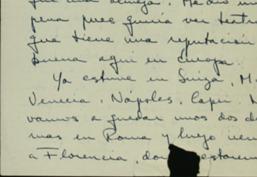 pena pues quería ver teatro
que tiene una reputación
buena aquí en europa.
Ya estuve en Suiza, M
Venecia, Nápoles, Capri,
vamos a quedar unos dos d
mas en Roma y luego
a Florencia, don estarem